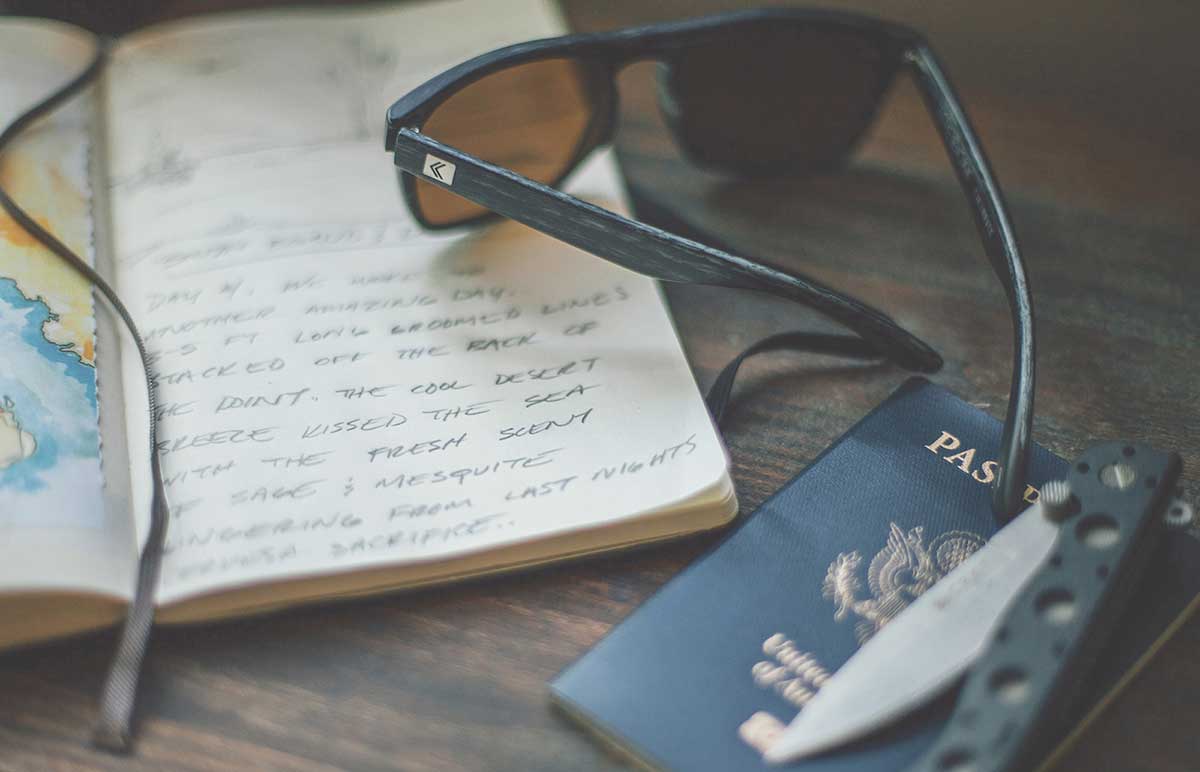 DAY 4,
ANOTHER AMAZING DAY.
FT LONG GROOMED LINES
STACKED OFF THE BACK OF
THE POINT. THE COOL DESERT
BREEZE KISSED THE SEA
WITH THE FRESH SCENT
OF SAGE & MESQUITE
LINGERING FROM LAST NIGHTS
SACRIFICE..
PASSP
United
of